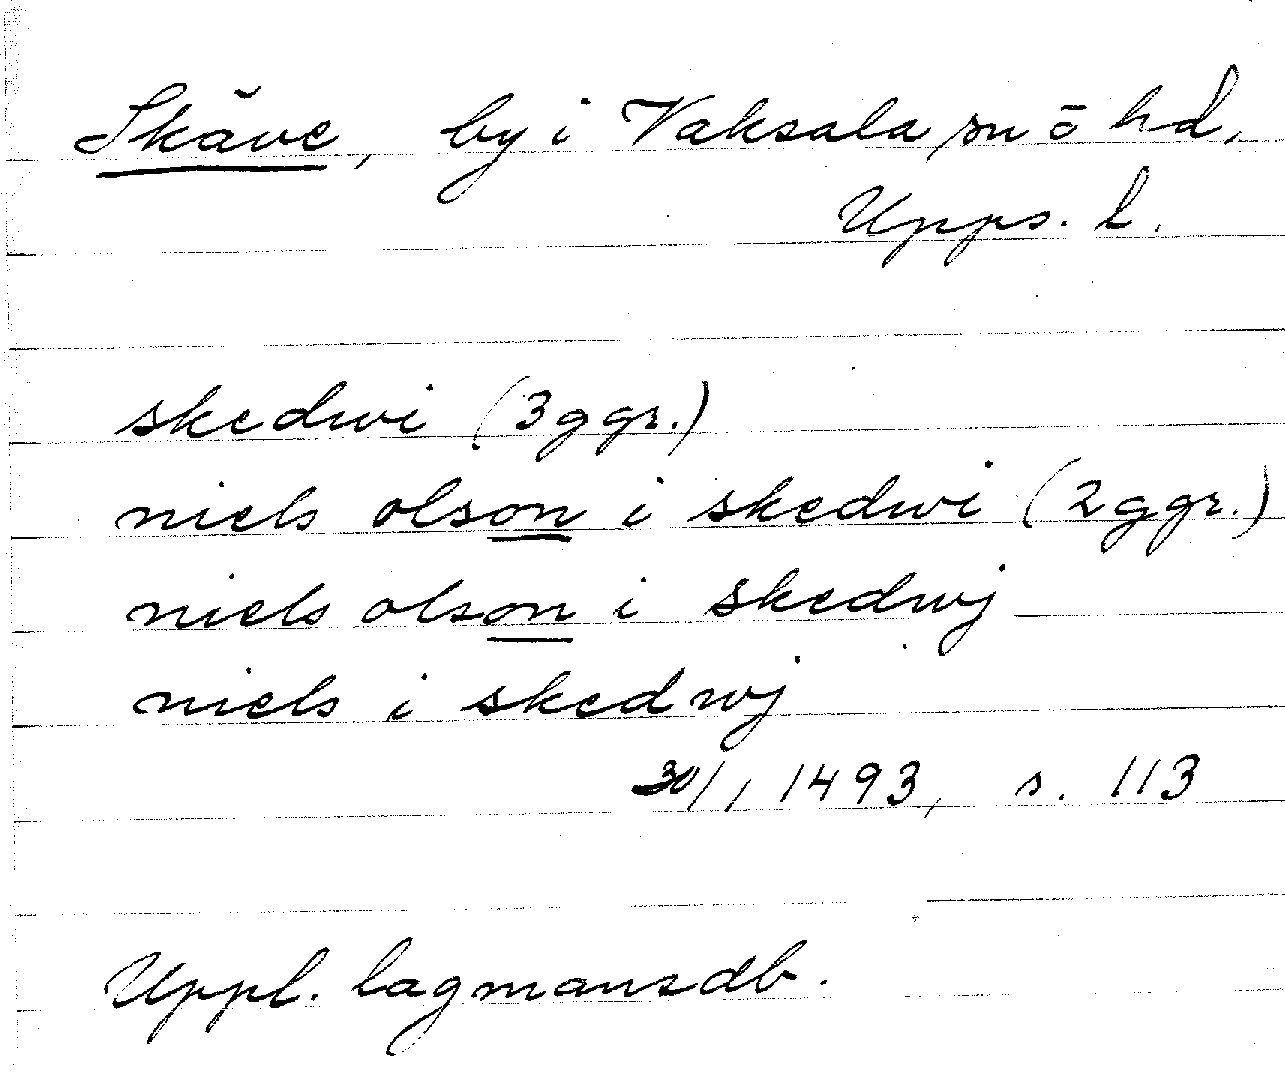 Skäve, by i Vaksala sn o hd,
Upps. l.
skedwi (3 ggr.)
niels olson i skedwi (2 ggr.)
niels olson i skedwj
niels i skedwj
30/1 1493, s. 113
Uppl. lagmansdb.